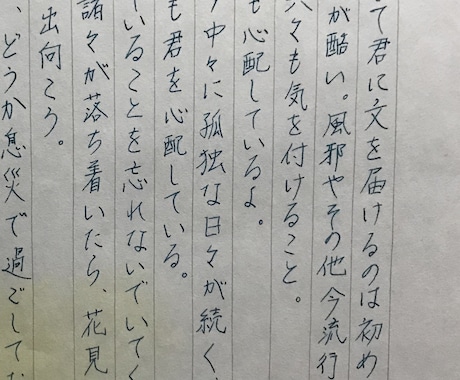 て君に文を届けるのは初め
が酷い。風邪やその他今流行
々も気を付けること。
も心配しているよ。
中々に孤独な日々が続く、
も君を心配している。
いることを忘れないでいてく
諸々が落ち着いたら、花見
出向こう。
、どうか息災で過ごしてな